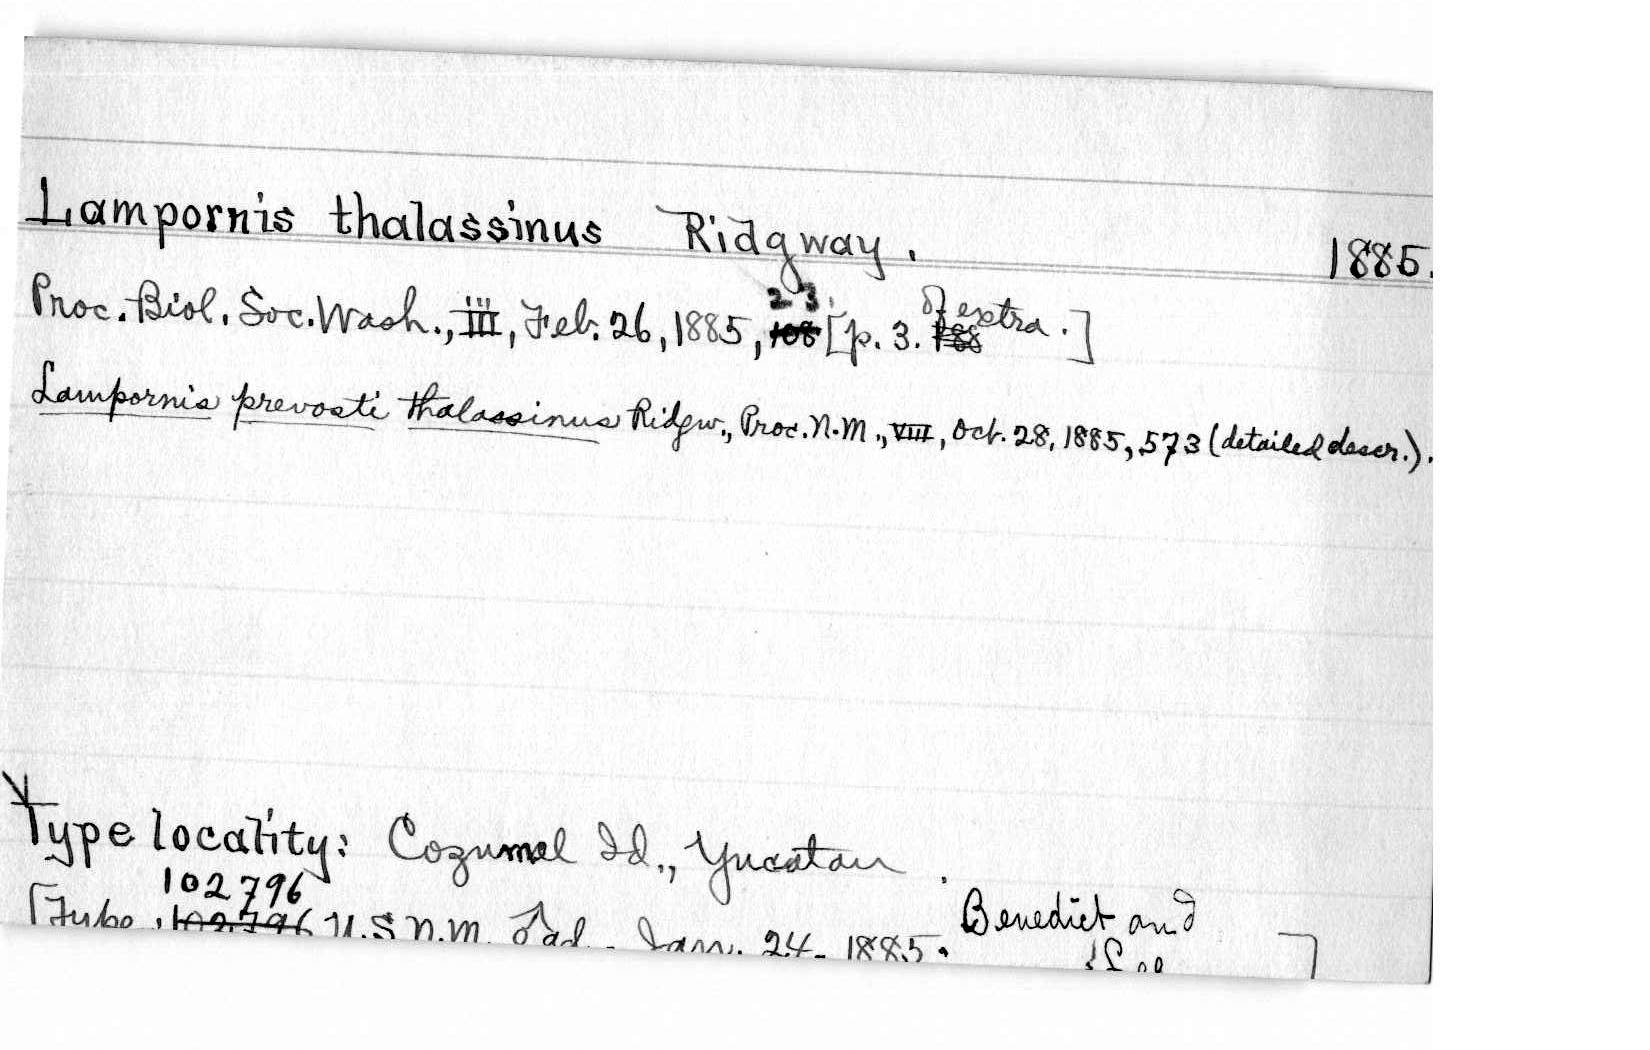 Lampornis thalassinus Ridgway. 1885.
Proc. Biol. Soc. Wash., III, Feb. 26, 1885, 108 23. [p. 3. of extra.]
Lampornis prevosti thalassinus Ridgw., Proc. N.M., VIII, Oct. 28, 1885, 573 (detailed descr.).
Type locality: Cozumel Id., Yucatan.
102796
[Type, 102796 U.S.N.M. ♂ ad. Jan. 24- 1885. Benedict and
]